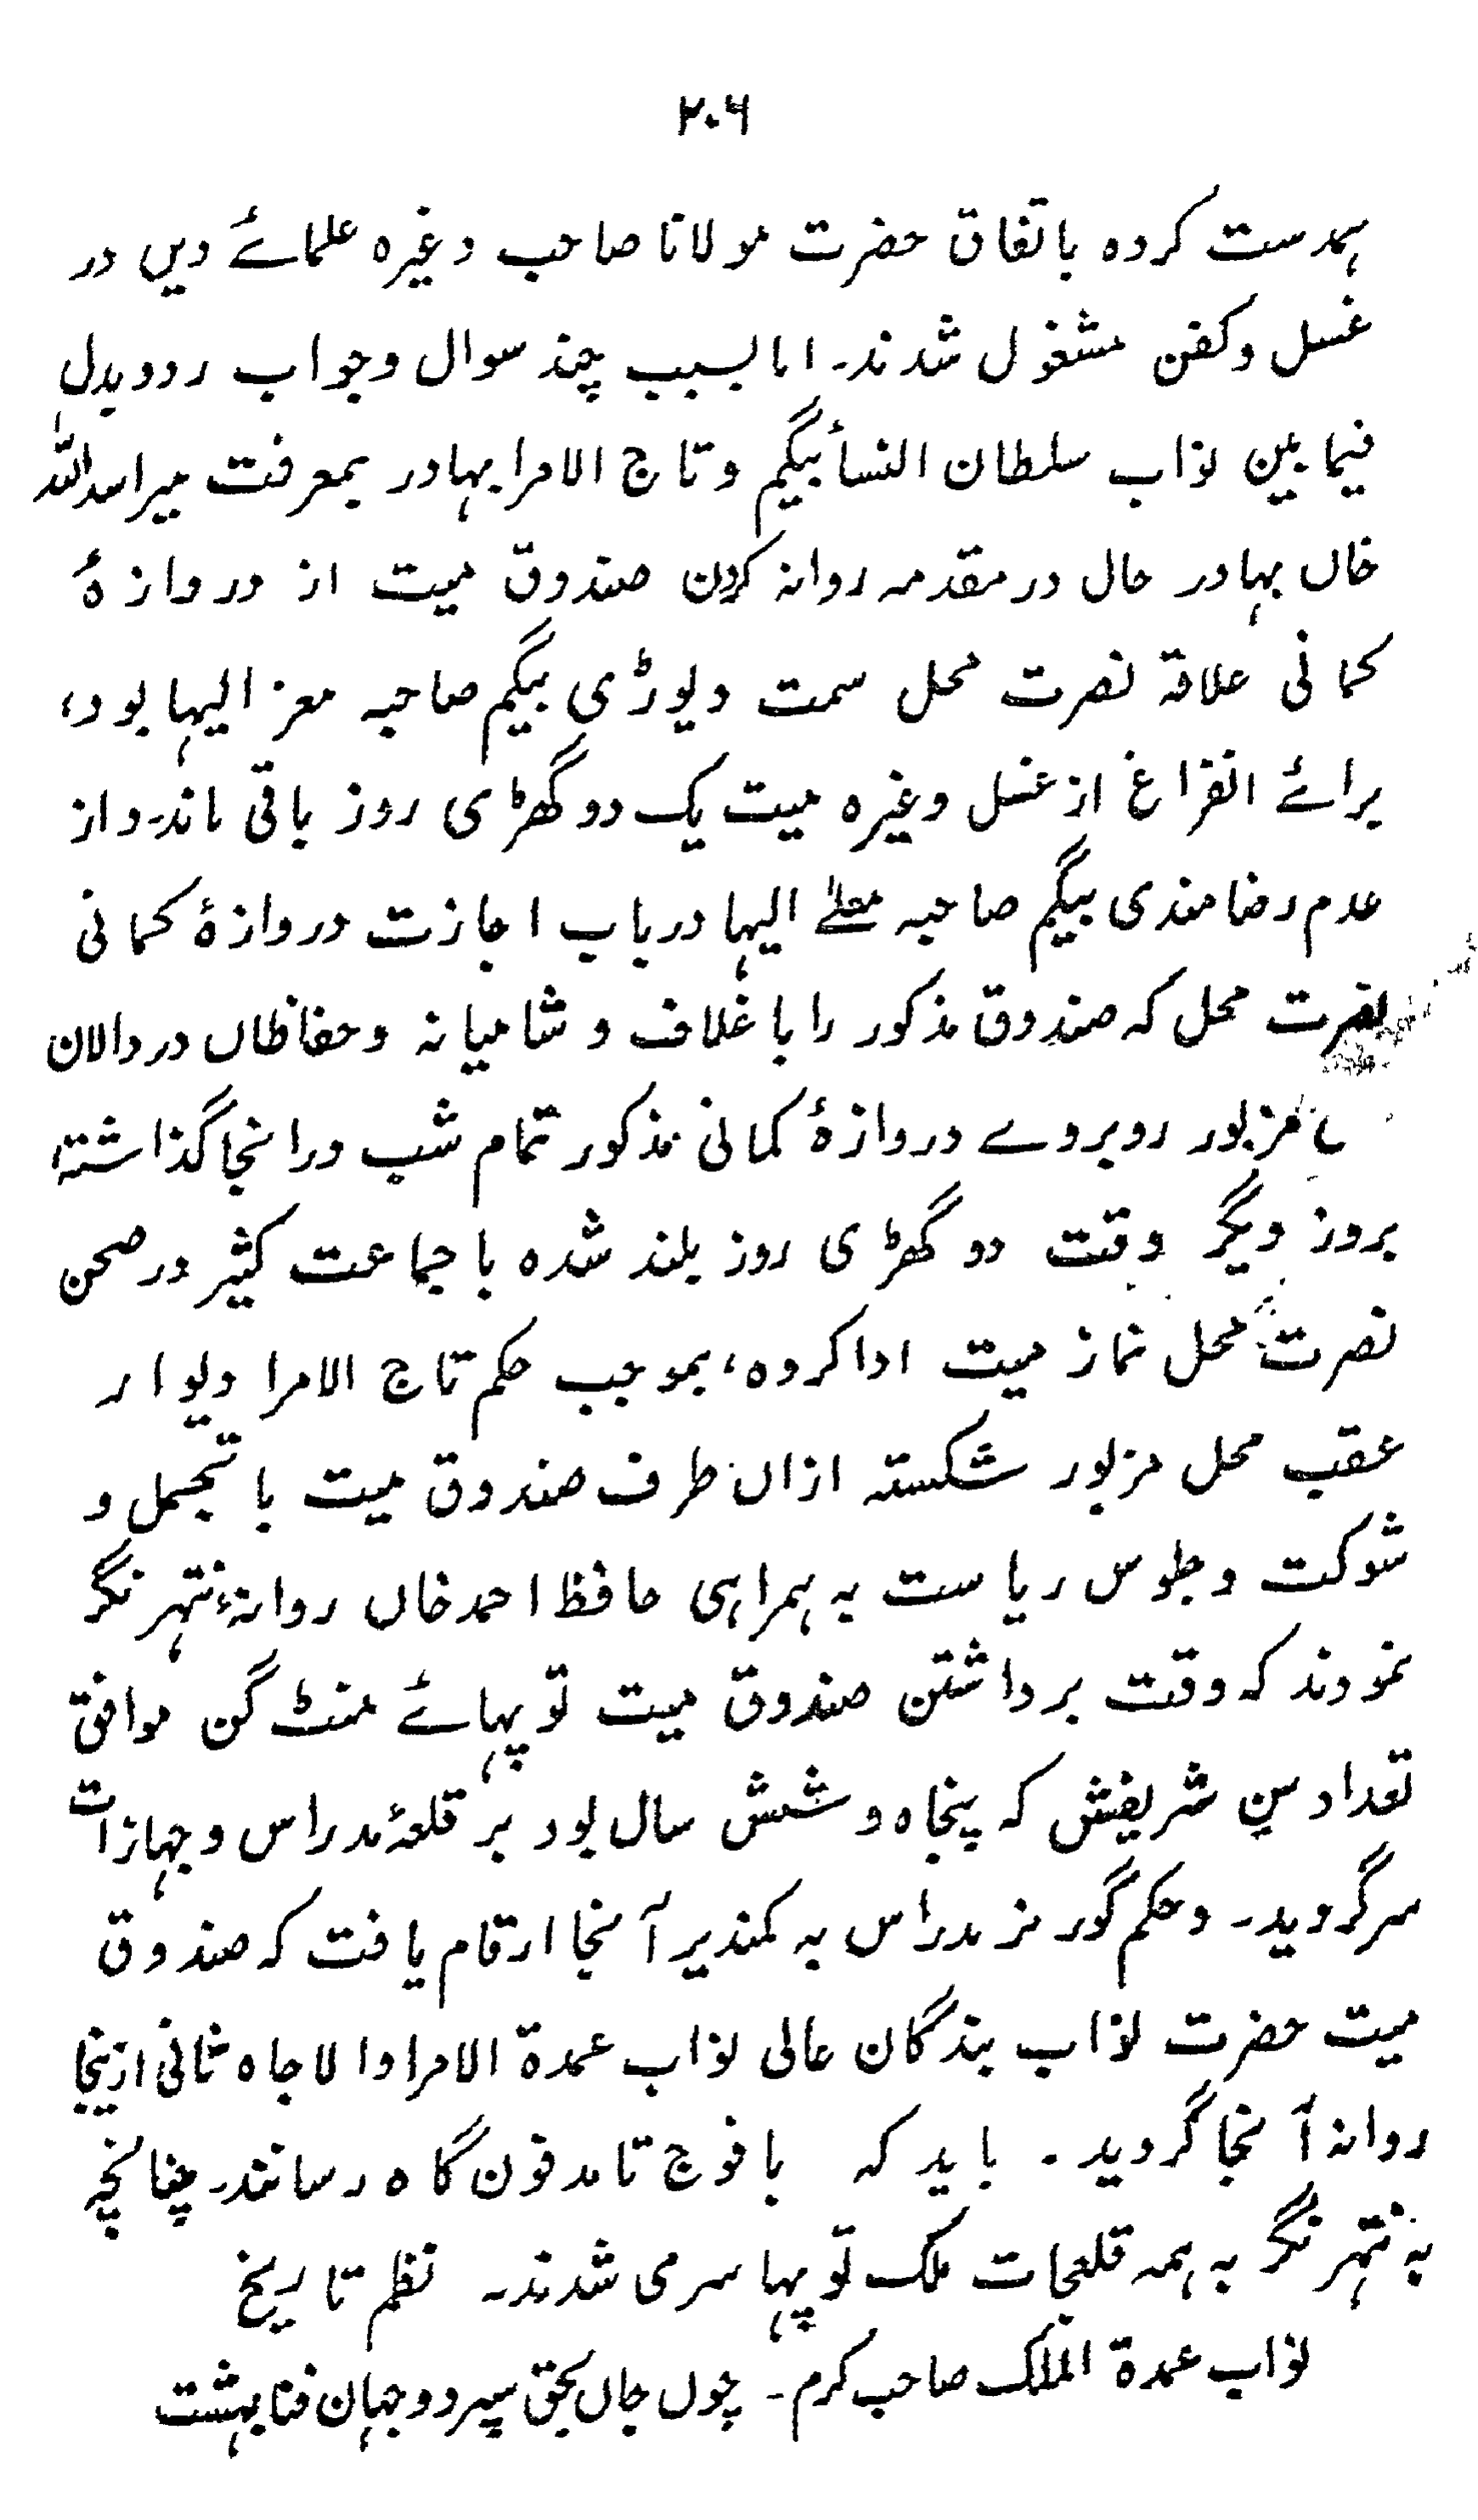 ۲۰۶
ہمدست کردہ باتفاق حضرت مولانا صاحب وغیرہ علمائے دیں در
غسل و کفن مشغول شدند۔ اما بسبب چند سوال و جواب ردوبدل
فیمابین نواب سلطان النسأ بیگم و تاج الامرا بہادر بمعرفت میر اسداللہ
خاں بہادر حال در مقدمہ روانہ کردن صندوق میت از دروازۂ
کمانی علاقۂ نصرت محل سمت دیوڑھی بیگم صاحبہ معز الیہا بود،
برائے انفراغ از غسل وغیرہ میت یک دو گھڑی روز باقی ماند۔ و از
عدم رضامندی بیگم صاحبہ معلےٰ الیہا در باب اجازت دروازۂ کمانی
نصرت محل کہ صندوق مذکور را با غلاف و شامیانہ و حفاظاں در دالان
مزبور روبروے دروازۂ کمانی مذکور تمام شب در انجا گذاشتہ،
بروز دیگر وقت دو گھڑی روز بلند شدہ با جماعت کثیر در صحن
نصرت محل نماز میت ادا کردہ، بموجب حکم تاج الامرا دیوار
عقب محل مزبور شکستہ ازاں طرف صندوق میت با تجمل و
شوکت و جلوس ریاست بہ ہمراہی حافظ احمد خاں روانۂ نتہر نگر
نمودند کہ وقت برداشتن صندوق میت توپہائے منٹ گن موافق
تعداد سن شریفش کہ پنجاہ و شش سال بود بر قلعۂ مدراس و جہازات
سر گردید۔ و حکم گورنر مدراس بہ کمندیر آنجا ارقام یافت کہ صندوق
میت حضرت نواب بندگان عالی نواب عمدة الامرا والاجاہ ثانی ازینجا
روانہ آنجا گردید۔ باید کہ با فوج تا مدفون گاہ رسانند۔ چنانچہ
بہ نتہر نگر بہ ہمہ قلعجات ملک توپہا سر می شدند۔ نظم تاریخ
نواب عمدة الملک صاحب کرم۔ چوں جاں بحق سپرد و جہان فنا بہشت